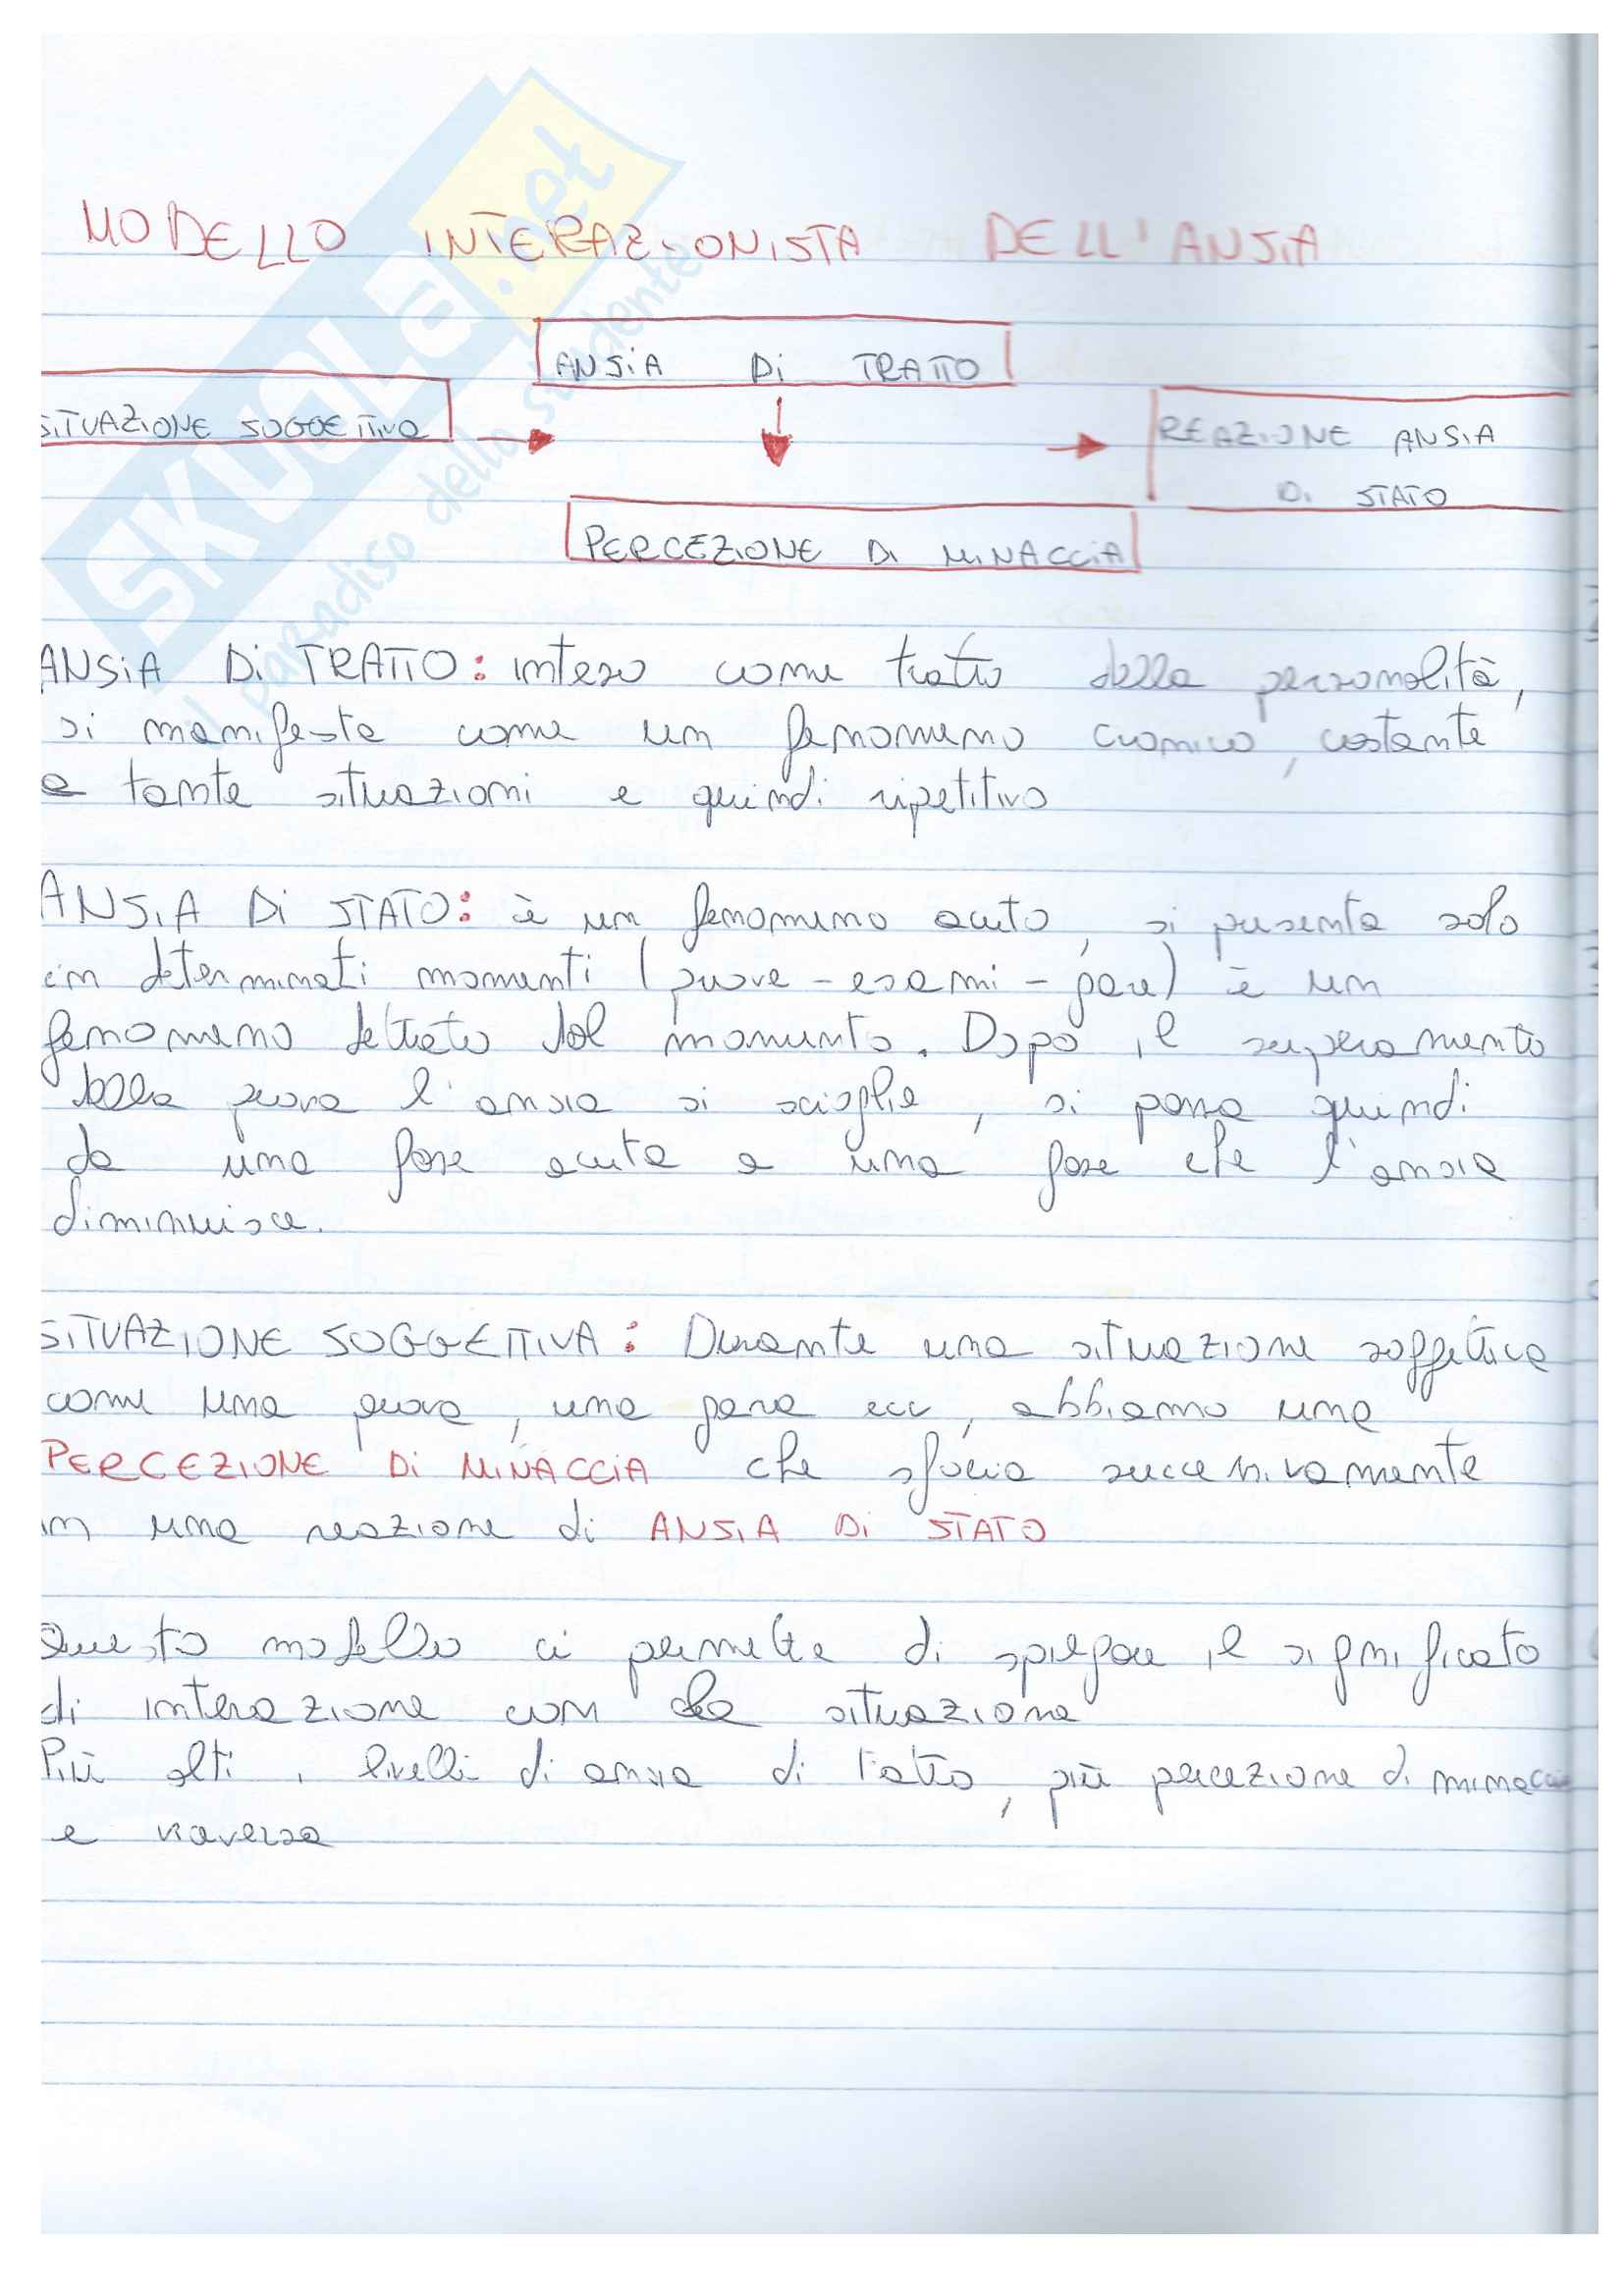 MODELLO INTERAZIONISTA DELL'ANSIA
ANSIA Di TRATTO
SITUAZIONE SOGGETTIVA
REAZIONE ANSIA
Di STATO
PERCEZIONE Di MINACCIA
ANSIA Di TRATTO: inteso come tratto della personalità,
si manifesta come un fenomeno cronico, costante
a tante situazioni e quindi ripetitivo
ANSIA Di STATO: è un fenomeno acuto, si presenta solo
in determinati momenti (prove - esami - gare) è un
fenomeno dettato dal momento. Dopo il superamento
della prova l'ansia si scioglie, si passa quindi
da una fase acuta a una fase che l'ansia
diminuisce.
SITUAZIONE SOGGETTIVA: Durante una situazione soggettiva
come una prova, una gara ecc, abbiamo una
PERCEZIONE Di MINACCIA che sfocia successivamente
in una reazione di ANSIA Di STATO
Questo modello ci permette di spiegare il significato
di interazione con la situazione
Più alti i livelli di ansia di tratto, più percezione di minaccia
e viceversa
SKUOLA.net
il paradiso dello studente